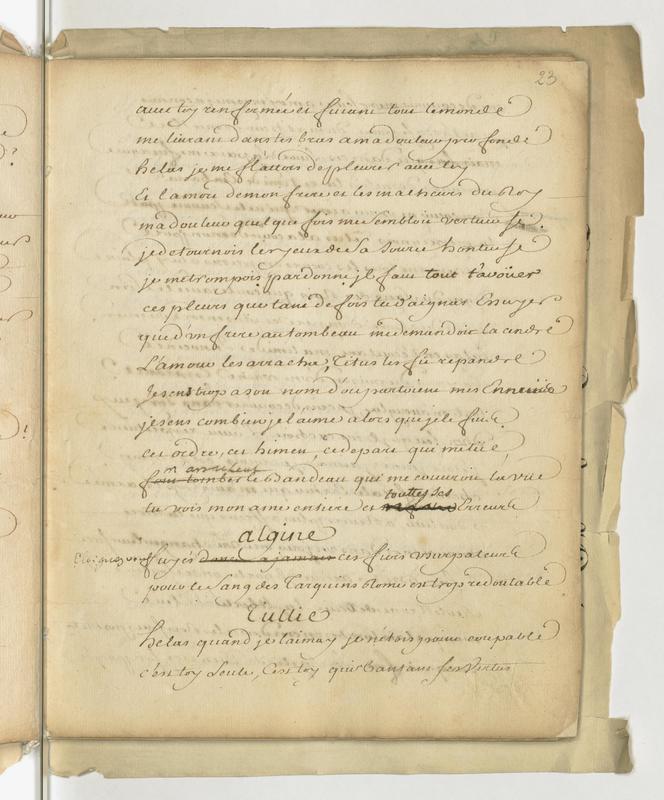 23
avec toy renfermée et fuiant tout le monde
me livrant dans tes bras a ma douleur profonde
helas je me flattois de pleurer avec toy
Et l'amour de mon frere et les malheurs du Roy
ma douleur quelque fois me sembloit vertueuse.
je detournois les yeux de sa source honteuse
je me trompois, pardonne, jl faut tout t'avoüer
ces pleurs que tant de fois tu daignas Essuyer
que d'un frere au tombeau me demandoit la cendre
L'amour les arracha, Titus les fit repandre
Je sens trop a son nom d'ou partoient mes Ennuis
je sens combien je l'aime alors que je le fuis
cet ordre, cet himen, ce depart qui me tüe,
m'arrachent
font tomber le bandeau qui me couvroit la vüe
touttes ses
tu vois mon ame entiere et Erreurs
algine
Eloignez vous fuyés donc a jamais ces fiers usurpateurs
pour le sang des Tarquins Rome est trop redoutable
Tullie
helas quand je l'aimay je n'étois point coupable
c'est toy seule, c'est toy qui vantant ses vertus